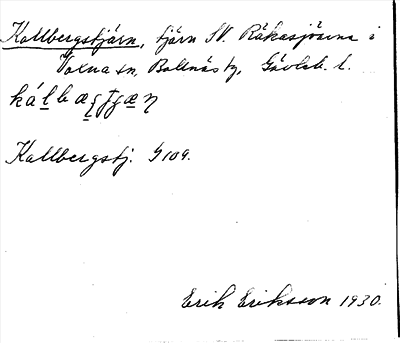 Kallbergstjärn, tjärn SV. Råkasjöarna i
Voxna sn, Bollnäs tg, Gävleb. l.
Kallbergstj. G 109.
Erik Eriksson 1930.